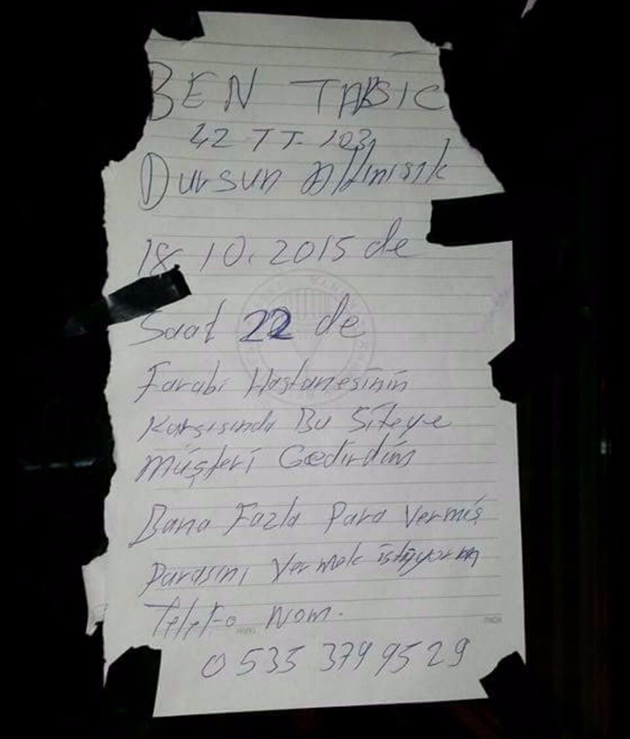 BEN TAKSİC
42 TT 1031
Dursun Altınışık
18.10.2015 de
Saat 22 de
Farabi Hastanesinin
Karşısında Bu Siteye
Müşteri Gedirdim
Bana Fazla Para Vermiş
Parasını Vermek istiyorum
Telefo Nom.
0 535 379 95 29